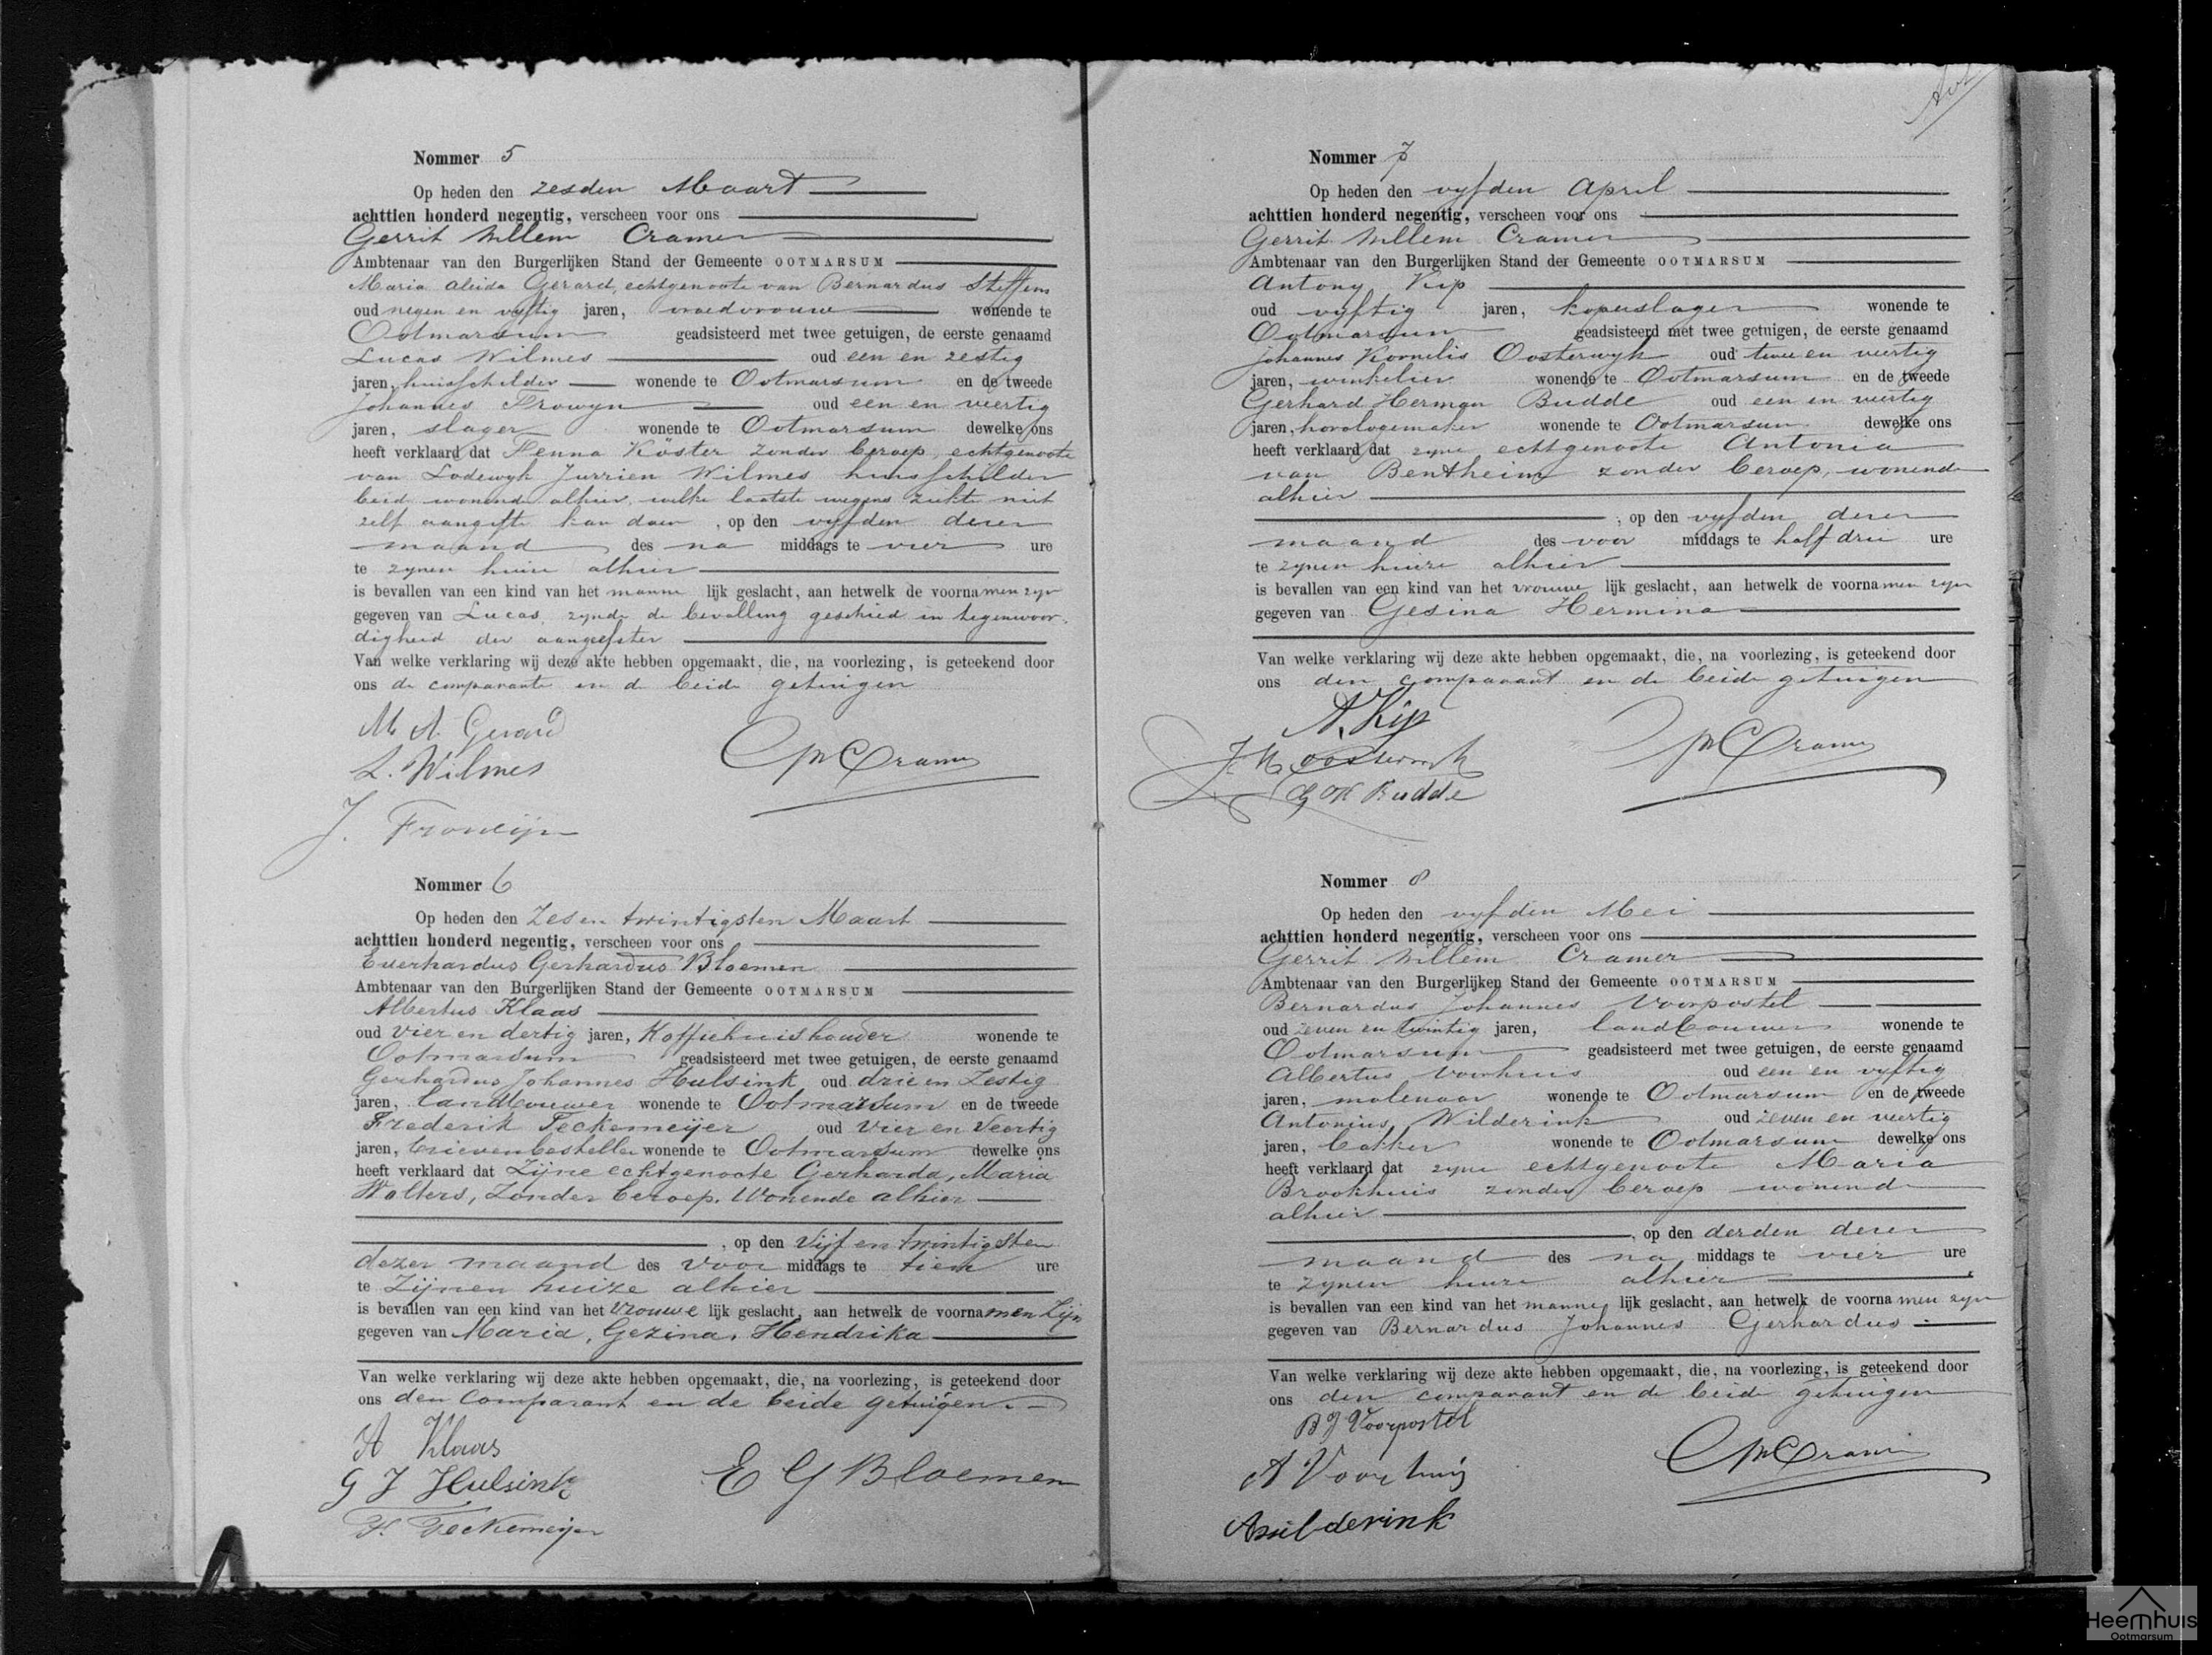 Nommer 5
Op heden den zesden Maart
achttien honderd negentig, verscheen voor ons
Gerrit Willem Cramer
Ambtenaar van den Burgerlijken Stand der Gemeente OOTMARSUM
Maria Aleida Gerard, echtgenoote van Bernardus Steffens
oud negen en vyftig jaren, vroedvrouw wonende te
Ootmarsum geadsisteerd met twee getuigen, de eerste genaamd
Lucas Wilmes oud een en zestig
jaren, huisschilder wonende te Ootmarsum en de tweede
Johannes Frowyn oud een en veertig
jaren, slager wonende te Ootmarsum dewelke ons
heeft verklaard dat Fenna Köster zonder beroep, echtgenoote
van Lodewyk Jurrien Wilmes huisschilder
beid wonende alhier, welke laatste wegens ziekte niet
zelf aangifte kan doen, op den vyfden dezer
maand des na middags te vier ure
te zynen huize alhier
is bevallen van een kind van het manne lijk geslacht, aan hetwelk de voornamen zyn
gegeven van Lucas, zynde de bevalling geschied in tegenwoor-
digheid der aangeefster
Van welke verklaring wij deze akte hebben opgemaakt, die, na voorlezing, is geteekend door
ons de comparante en de beide getuigen
M A Gerard
L. Wilmes
GW Cramer
J. Frowijn
Nommer 6
Op heden den Zes en twintigsten Maart
achttien honderd negentig, verscheen voor ons
Everhardus Gerhardus Bloemen
Ambtenaar van den Burgerlijken Stand der Gemeente OOTMARSUM
Albertus Klaas
oud vier en dertig jaren, Koffiehuishouder wonende te
Ootmarsum geadsisteerd met twee getuigen, de eerste genaamd
Gerhardus Johannes Hulsink oud drie en Zestig
jaren, landbouwer wonende te Ootmarsum en de tweede
Frederik Teckemeijer oud Vier en Veertig
jaren, brievenbesteller wonende te Ootmarsum dewelke ons
heeft verklaard dat Zijne echtgenoote Gerharda, Maria
Wolters, Zonder beroep. Wonende alhier
, op den Vijf en twintigsten
dezer maand des voor middags te tien ure
te Zijnen huize alhier
is bevallen van een kind van het Vrouwe lijk geslacht, aan hetwelk de voornamen Zijn
gegeven van Maria, Gezina, Hendrika
Van welke verklaring wij deze akte hebben opgemaakt, die, na voorlezing, is geteekend door
ons den Comparant en de beide getuigen.
A Klaas
G J Hulsink
E G Bloemen
F. Teckemeijer
Nommer 7
Op heden den vyfden April
achttien honderd negentig, verscheen voor ons
Gerrit Willem Cramer
Ambtenaar van den Burgerlijken Stand der Gemeente OOTMARSUM
Antony Kip
oud vyftig jaren, koperslager wonende te
Ootmarsum geadsisteerd met twee getuigen, de eerste genaamd
Johannes Kornelis Oosterwyk oud twee en veertig
jaren, winkelier wonende te Ootmarsum en de tweede
Gerhard Herman Budde oud een en veertig
jaren, horologemaker wonende te Ootmarsum dewelke ons
heeft verklaard dat zyne echtgenoote Antonia
van Bentheim zonder beroep, wonende
alhier
, op den vyfden dezer
maand des voor middags te half drie ure
te zynen huize alhier
is bevallen van een kind van het vrouwe lijk geslacht, aan hetwelk de voornamen zyn
gegeven van Gesina Hermina
Van welke verklaring wij deze akte hebben opgemaakt, die, na voorlezing, is geteekend door
ons den comparant en de beide getuigen
A. Kip
J. K. Oosterwijk
GW Cramer
G H Budde
Nommer 8
Op heden den vyfden Mei
achttien honderd negentig, verscheen voor ons
Gerrit Willem Cramer
Ambtenaar van den Burgerlijken Stand der Gemeente OOTMARSUM
Bernardus Johannes Voorpostel
oud zeven en twintig jaren, landbouwer wonende te
Ootmarsum geadsisteerd met twee getuigen, de eerste genaamd
Albertus Voorhuis oud een en vyftig
jaren, molenaar wonende te Ootmarsum en de tweede
Antonius Wilderink oud zeven en veertig
jaren, bakker wonende te Ootmarsum dewelke ons
heeft verklaard dat zyne echtgenoote Maria
Brookhuis zonder beroep wonende
alhier
, op den derden dezer
maand des na middags te vier ure
te zynen huize alhier
is bevallen van een kind van het manne lijk geslacht, aan hetwelk de voornamen zyn
gegeven van Bernardus Johannes Gerhardus
Van welke verklaring wij deze akte hebben opgemaakt, die, na voorlezing, is geteekend door
ons den comparant en de beide getuigen
B J Voorpostel
A Voorhuis
GW Cramer
A Wilderink
Heemhuis
Ootmarsum